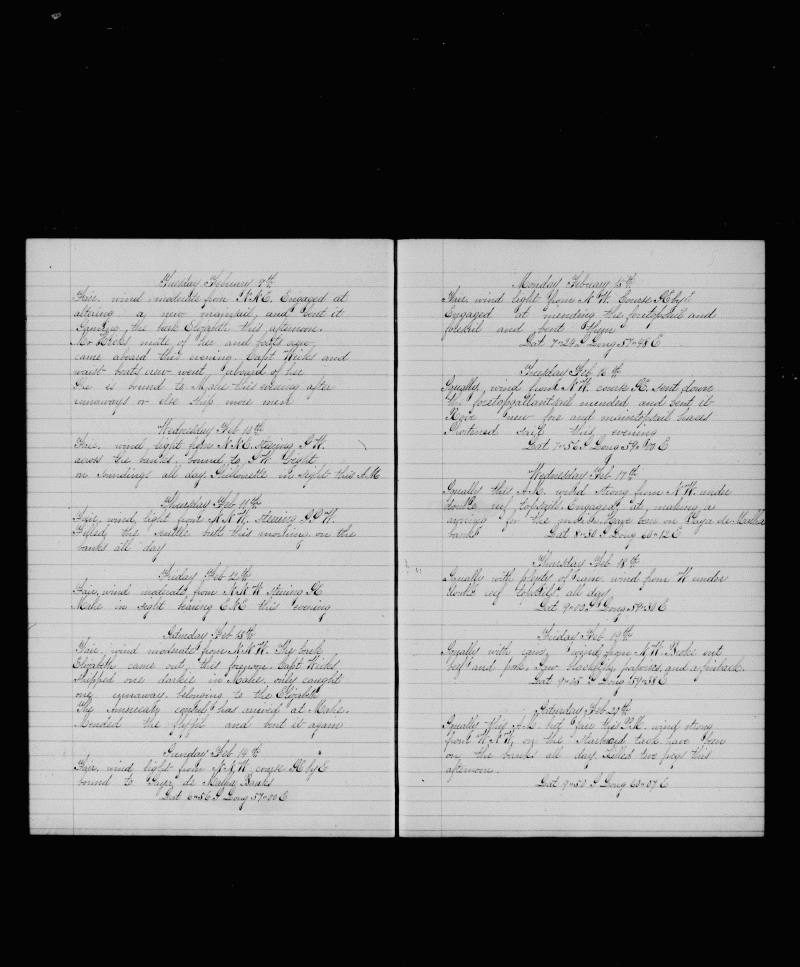 Tuesday February 9th
Fair, wind moderate from N.N.E. Engaged at
altering a new mainsail, and bent it
Gammed the bark Elizabeth this afternoon.
Mr Hicks, mate of her and boats crew
came aboard this evening. Capt Hicks and
waist boats crew went aboard of her
She is bound to Mahe this evening after
runaways or else ship more men
Wednesday Feb 10th
Fair, wind light from N.N.E. steering S.W.
across the banks, bound to S.W. Bight,
on soundings all day. Silhouette in sight this A.M.
Thursday Feb 11th
Fair, wind light from N.N.W. steering S.S.W.
Filled the scuttle butt this morning, on the
banks all day
Friday Feb 12th
Fair, wind moderate from N.N.W. steering SE
Mahe in sight bearing E.N.E. this evening
Saturday Feb 13th
Fair, wind moderate from N.N.W. The bark
Elizabeth came out, this forenoon. Capt Hicks
shipped one darkie in Mahe, only caught
one runaway belonging to the Elizabeth
The consul has arrived at Mahe.
Mended the and bent it again
Sunday Feb 14th
Fair, wind light from N.N.W. course SE by E
bound to Saya de Malha Banks
Lat 6-56 S Long 57-00 E
Monday February 15th
Fair, wind light from N.W. Course SE by E
Engaged at mending the foretopsail and
foresail and bent them
Lat 7-24 S Long 57-48 E
Tuesday Feb 16th
Squally, wind from N.W. course SE. Sent down
the foretopgallantsail mended and bent it
Rove new fore and maintopsail braces
Shortened sail this evening
Lat 7-56 S Long 59-00 E
Wednesday Feb 17th
Squally this A.M. wind strong from N.W. under
double reef topsails. Engaged at making a
awning for the Have been on Saya de Malha
bank Lat 8-30 S Long 60-12 E
Thursday Feb 18th
Squally with plenty of rain. wind from W under
double reef topsails all day
Lat 9-00 S Long 59-51 E
Friday Feb 19th
Squally with rain, wind from N.W. Broke out
beef and pork. Saw blackfish, porpoises, and a finback.
Lat 9-25 S Long 59-58 E
Saturday Feb 20th
Squally this A.M. but fair this P.M. wind strong
from W.N.W. on the starboard tack, have been
on the banks all day. Killed two pigs this
afternoon.
Lat 9-50 S Long 60-07 E